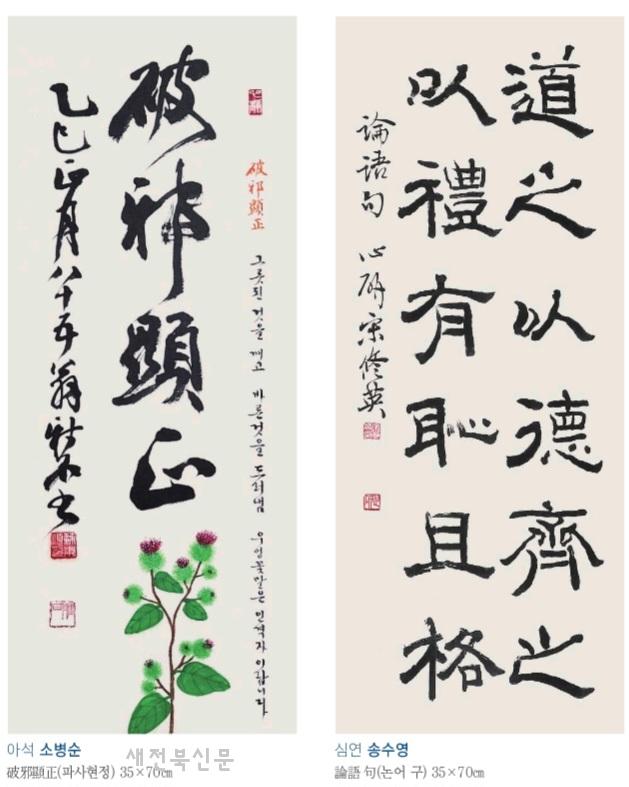 破邪顯正 그릇된 것을 깨고 바른것을 드러냄 우엉꽃말은 인격자 이랍니다
破邪顯正
乙巳正月八十五翁
道之以德齊之
以禮有恥且格
論語句 心硏 宋修英
아석 소병순
破邪顯正(파사현정) 35×70㎝
새전북신문
심연 송수영
論語 句(논어 구) 35×70㎝